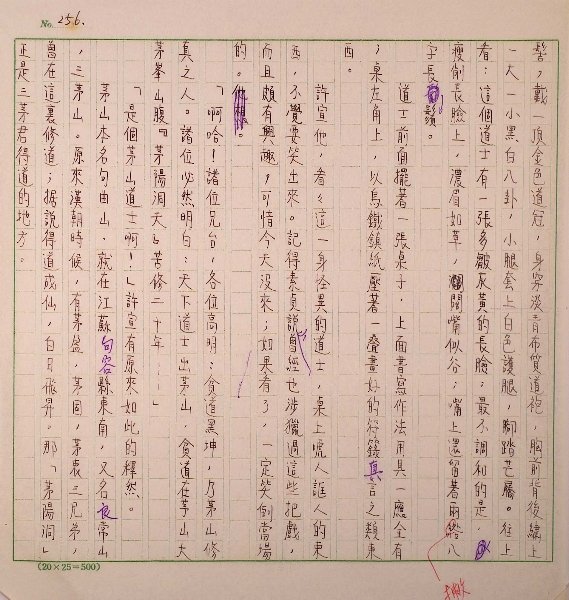 No. 256.
髻，戴一頂金色道冠，身穿淡青布質道袍，胸前背後繡上
一大一小黑白八卦，小腿套上白色護腿，腳踏芒屬。往上
看：這個道士有一張多皺灰黃的長臉，最不調和的是，
瘦削長臉上，濃眉如草，闊嘴似谷；嘴上還留著兩綹八
字長鬚。
道士前角擺著一張桌子，上面書寫作法用具一應全有
；桌左角上，以烏鐵鎮紙壓著一疊畫好的符籙真言之類東
西。
許宣他，看々這一身怪異的道士，桌上唬人誆人的東
西，不覺要笑出來。記得素貞說曾經也涉獵過這些把戲，
而且頗有興趣，可惜今天沒來；如果看了，一定笑倒當場
的。
「啊哈！諸位兄台，各位高明：貧道黑坤，乃茅山修
真之人。諸位必然明白：天下道士出茅山，貧道在茅山大
茅峯山腹『茅陽洞天』苦修二十年……」
「是個茅山道士啊！」許宣有原來如此的釋然。
茅山本名句曲山，就在江蘇句容縣東角，又名良常山
，三茅山。原來漢朝時候，有茅盈，茅固，茅衷三兄弟，
曾在這裏修道；据說得道成仙，白日飛昇。那「茅陽洞」
正是三茅君得道的地方。
(20×25=500)